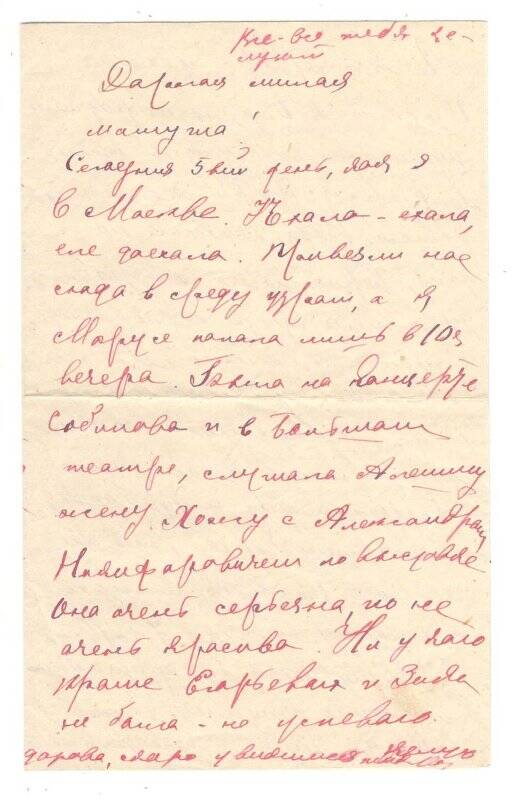 Все-все тебя це-
луют
Дорогая милая
мамуша!
Сегодня 5ый день, как я
в Москве. Ехала - ехала,
еле доехала. Привезли нас
сюда в среду утром, а я
Марусе попала лишь в 10ч
вечера. Была на концерте
Собинова и в Большом
театре, слушала Алешину
жену. Хожу с Александром
Никифоровичем по выставке
Она очень серьезна, но не
очень красива. Ни у кого
кроме и Зины
не была - не успеваю.
дорова, скоро увидимся